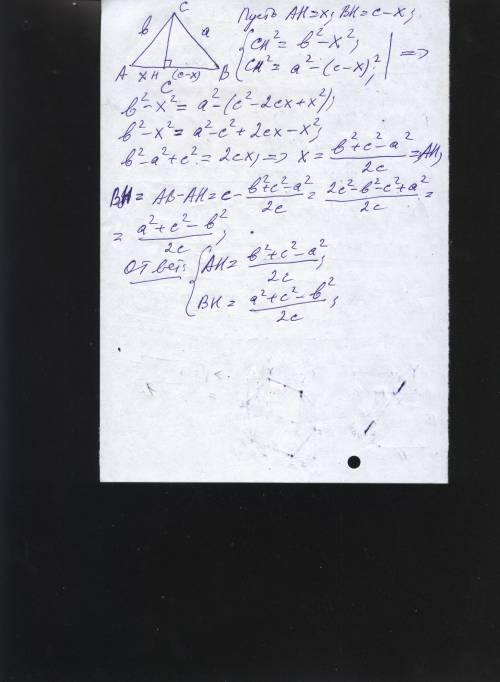 C
в a
A X H (c-x) B
C
Пусть AH=x; BH=c-x;
{ CH²=в²-x²;
{ CH²=a²-(c-x)²; | =>
в²-x²=a²-(c²-2cx+x²);
в²-x²=a²-c²+2cx-x²;
в²-a²+c²=2cx; => x = (в²+c²-a²)/2c = AH;
BH = AB-AH = c - (в²+c²-a²)/2c = (2c²-в²-c²+a²)/2c =
= (a²+c²-в²)/2c;
Ответ: { AH = (в²+c²-a²)/2c;
{ BH = (a²+c²-в²)/2c;